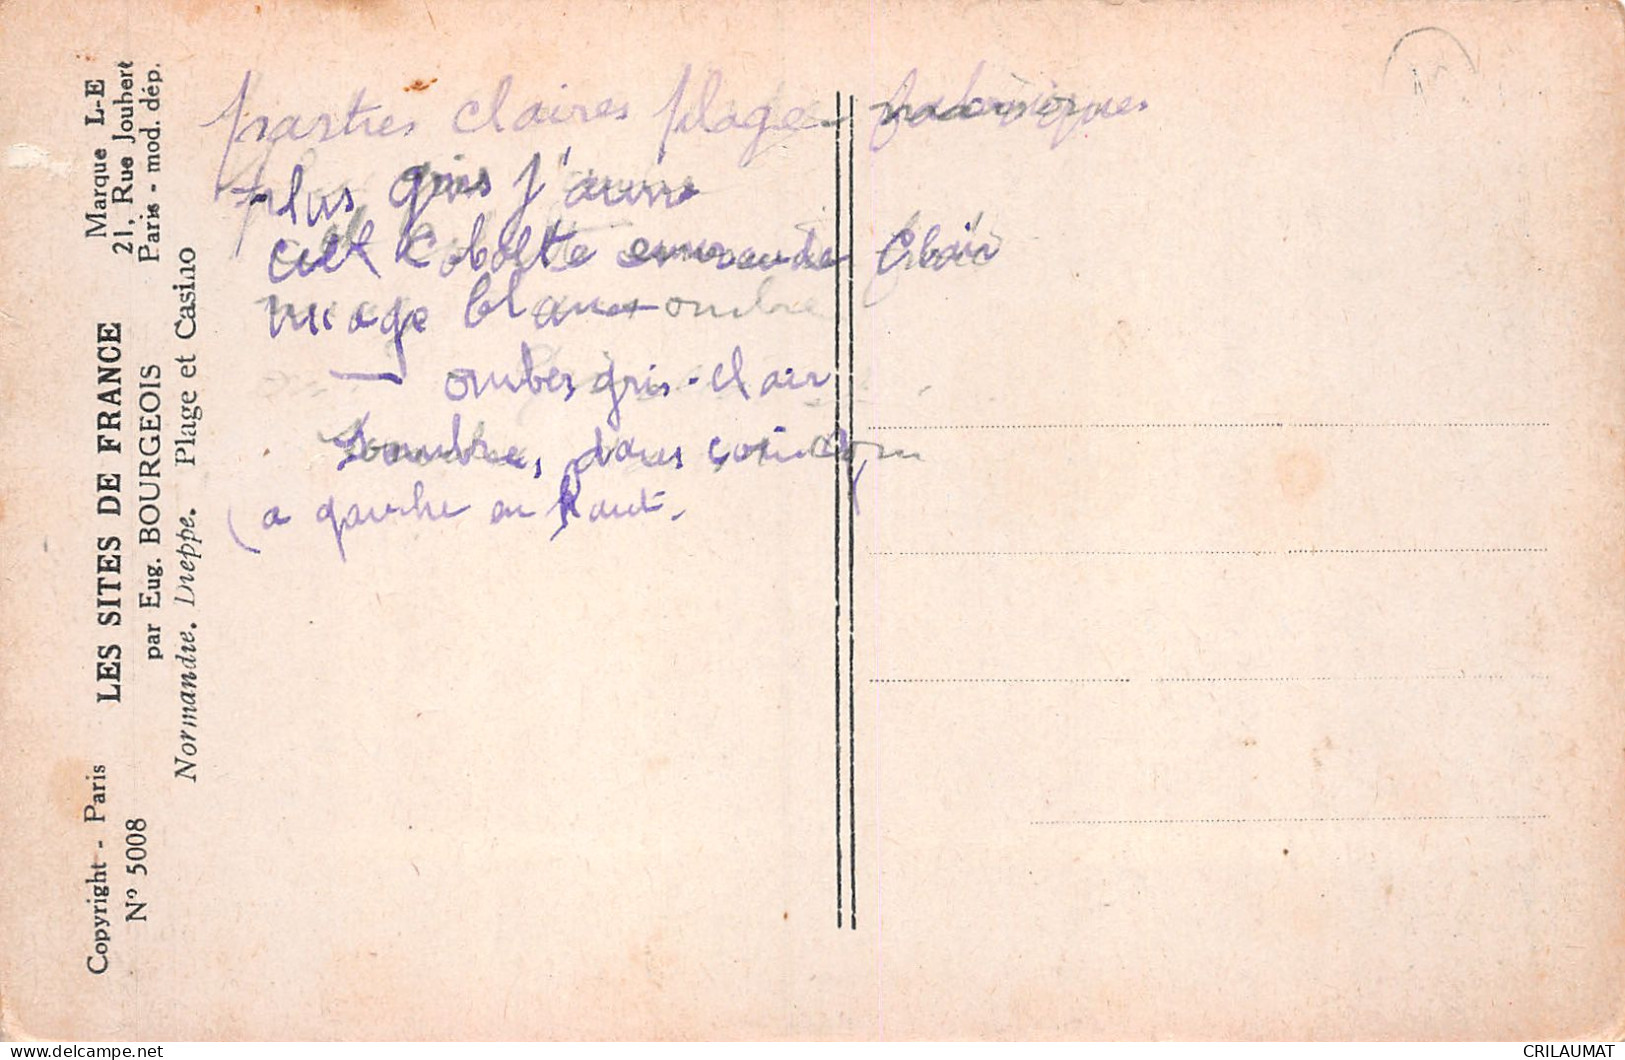 Copyright - Paris LES SITES DE FRANCE Marque L-E
Nº 5008 par Eug. BOURGEOIS 21, Rue Joubert
Paris - mod. dép.
Normandie. Dieppe. Plage et Casino
parties claires plage
plus gris jaune
ciel Cobalte emeraude Clair
nuage blanc ombre
ombres gris-clair
Sombres, dans coin
(a gauche en haut.
CRILAUMAT